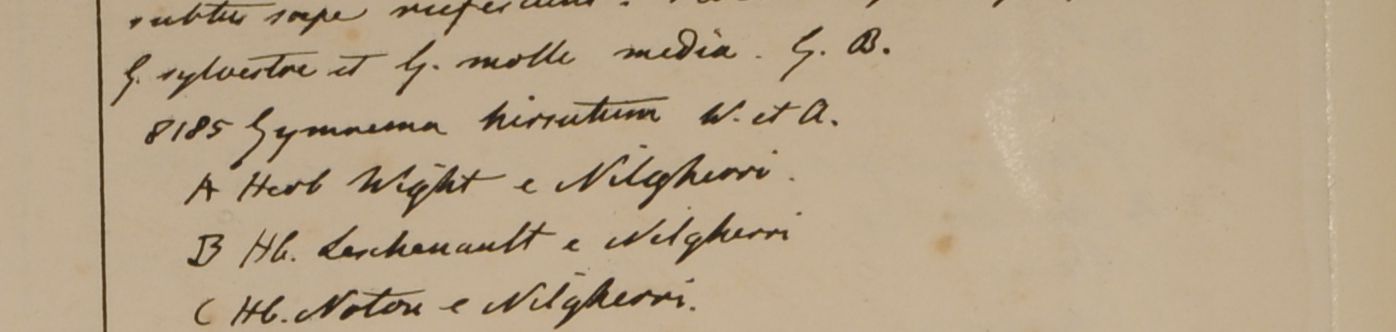 subtus saepe
G. sylvestre et G. molle media. G. B.
8185 Gymnema hirsutum W. et A.
A Herb Wight e Nilgherri.
B Hb. Leschenault e Nilgherri
C Hb. Noton e Nilgherri.